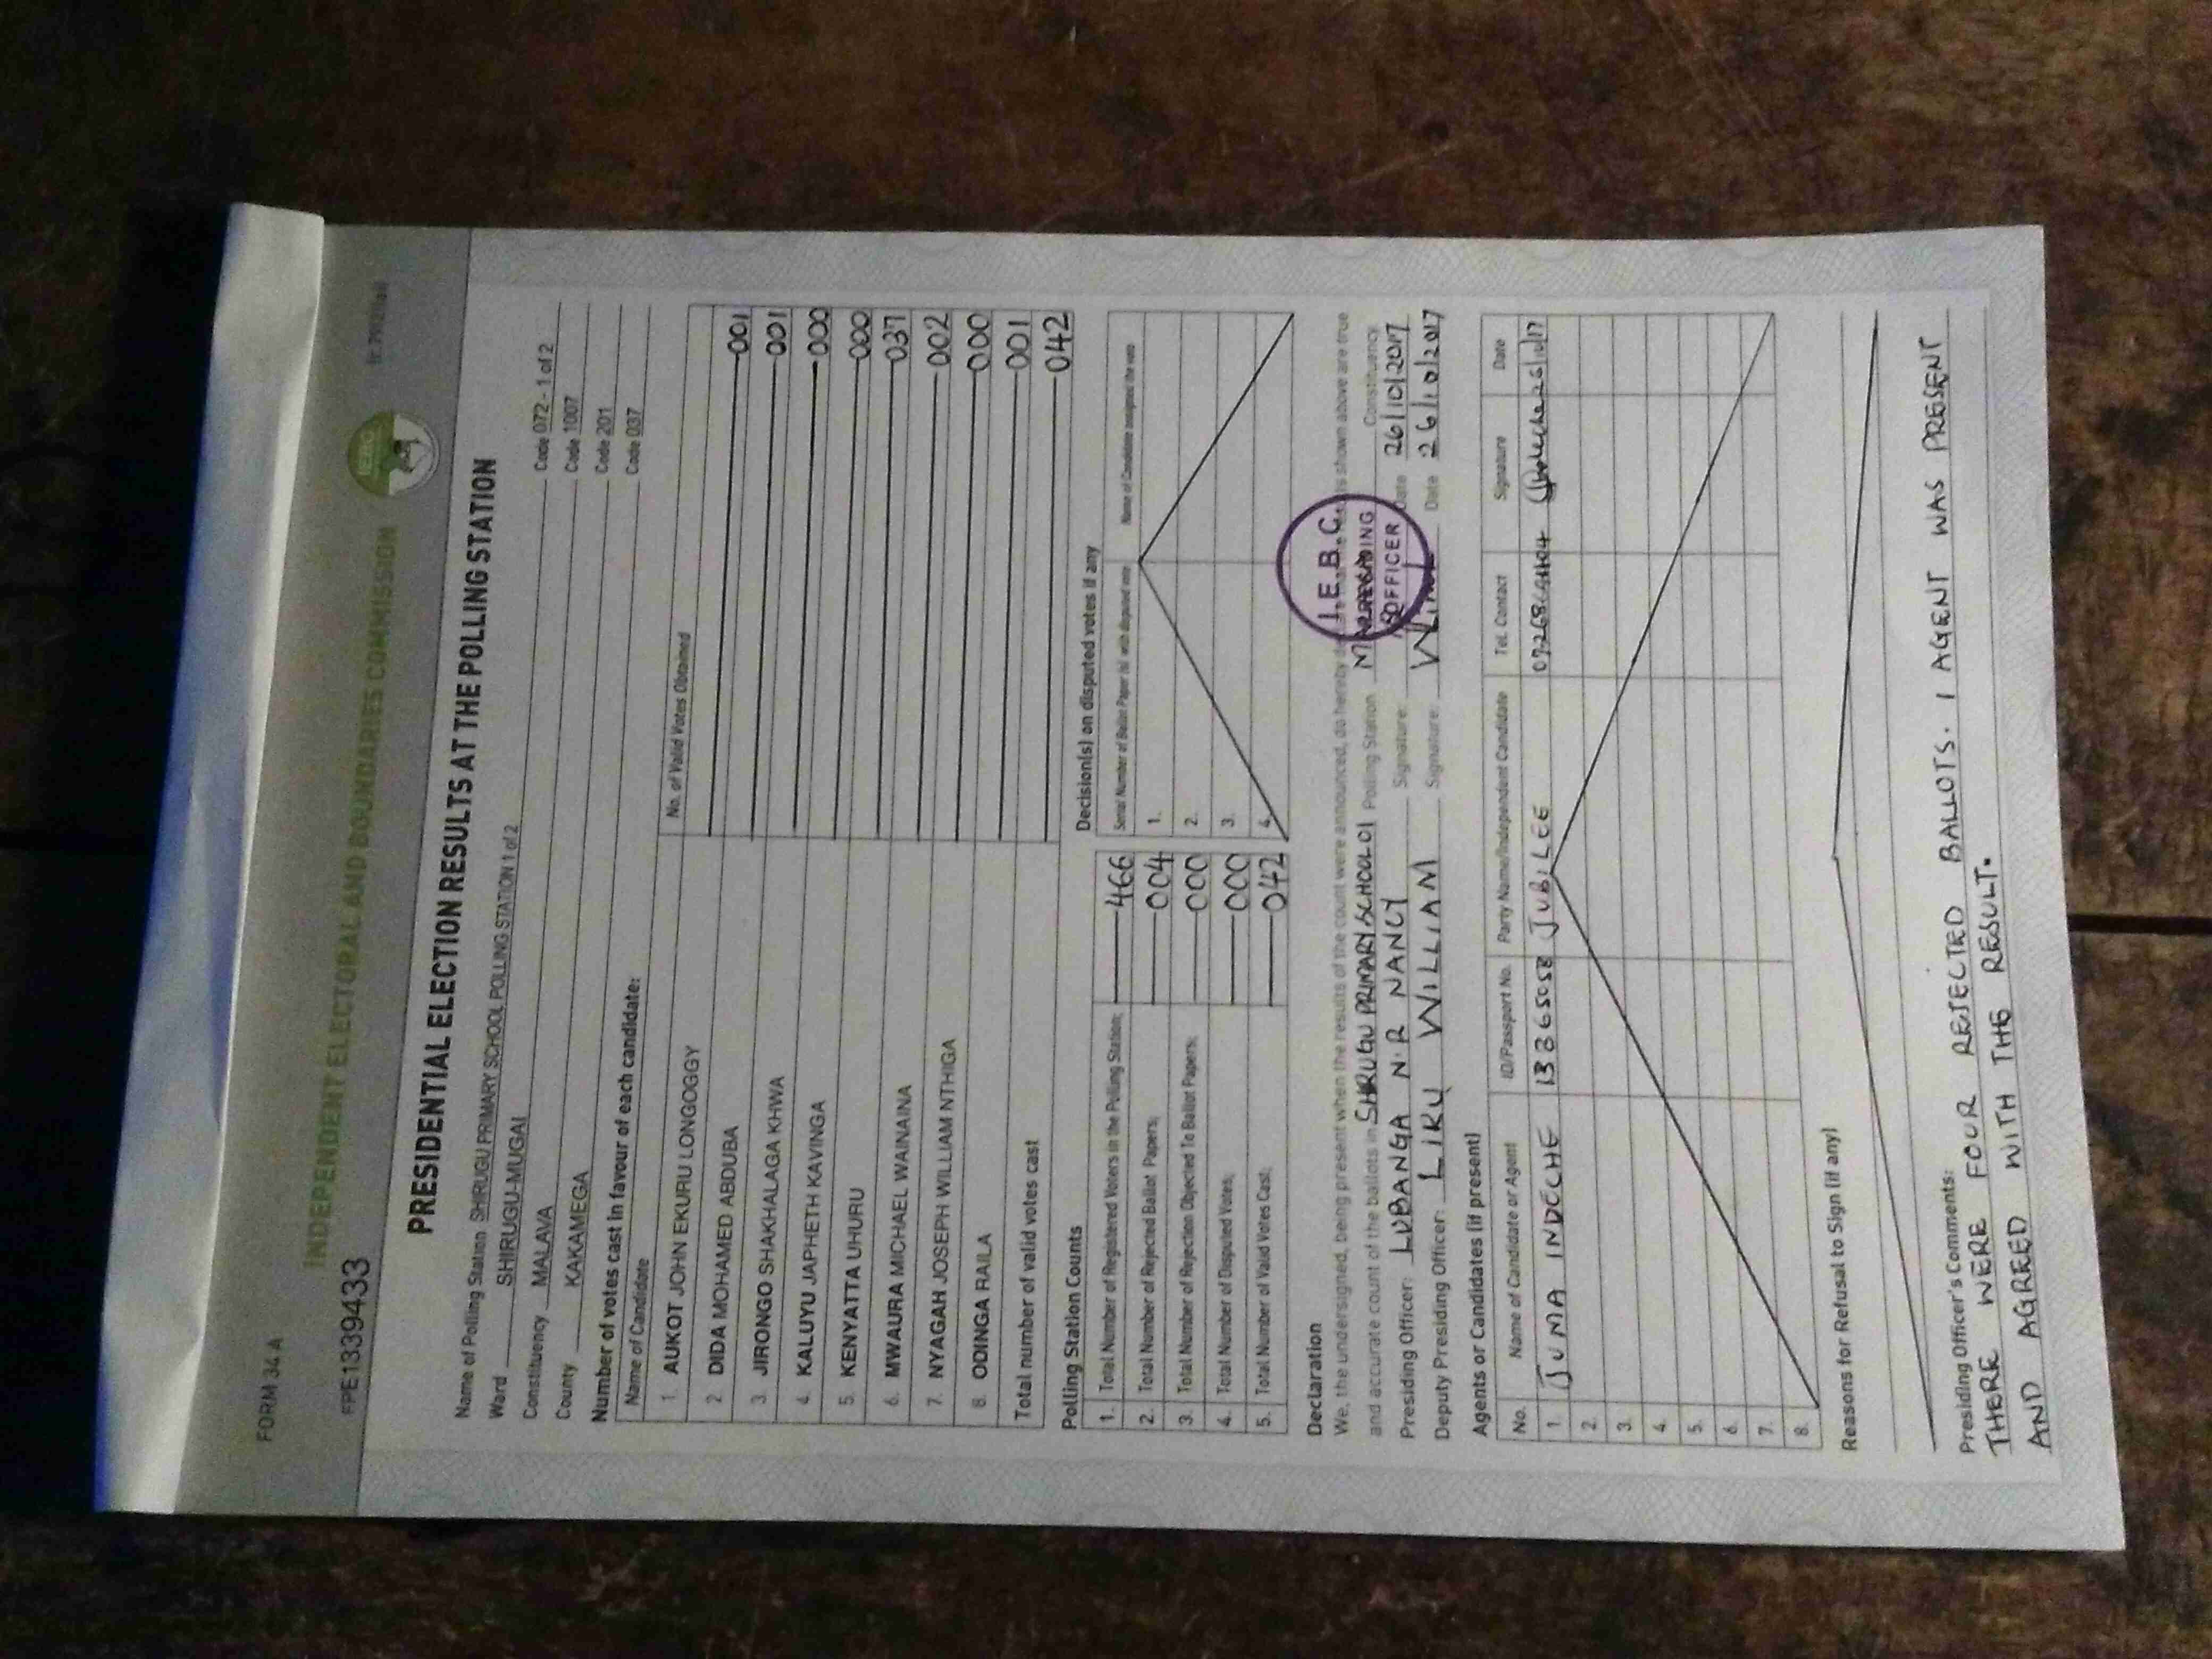 FORM 34 A
INDEPENDENT ELECTORAL AND BOUNDARIES COMMISSION
IEBC
FPE1339433
PRESIDENTIAL ELECTION RESULTS AT THE POLLING STATION
Name of Polling Station SHIRUGU PRIMARY SCHOOL POLLING STATION 1 of 2 Code 072 - 1 of 2
Ward SHIRUGU-MUGAI Code 1007
Constituency MALAVA Code 201
County KAKAMEGA Code 037
Number of votes cast in favour of each candidate:
Name of Candidate No. of Valid Votes Obtained
1 AUKOT JOHN EKURU LONGOGGY 001
2 DIDA MOHAMED ABDUBA 001
3. JIRONGO SHAKHALAGA KHWA 000
4. KALUYU JAPHETH KAVINGA 000
5. KENYATTA UHURU 037
6. MWAURA MICHAEL WAINAINA 002
7. NYAGAH JOSEPH WILLIAM NTHIGA 000
8. ODINGA RAILA 001
Total number of valid votes cast 042
Polling Station Counts
1. Total Number of Registered Voters in the Polling Station; 466
2. Total Number of Rejected Ballot Papers; 004
3. Total Number of Rejection Objected To Ballot Papers; 000
4. Total Number of Disputed Votes; 000
5. Total Number of Valid Votes Cast; 042
Decision(s) on disputed votes if any
Serial Number of Ballot Paper (s) with disputed vote Name of Candidate assigned the vote
1.
2.
3.
4.
Declaration
We, the undersigned, being present when the results of the count were announced, do hereby shown above are true
and accurate count of the ballots in SHIRUGU PRIMARY SCHOOL 01 Polling Station Constituency
Presiding Officer: LUBANGA N.R NANCY Signature: Date 26/10/2017
Deputy Presiding Officer: LIKU WILLIAM Signature: Date 26/10/2017
I.E.B.C.
PRESIDING
OFFICER
Agents or Candidates (if present)
No. Name of Candidate or Agent ID/Passport No. Party Name/Independent Candidate Tel. Contact Signature Date
1. JUMA INDECHE JUBILEE 26/10/17
2.
3.
4.
5.
6.
7.
8.
Reasons for Refusal to Sign (if any)
Presiding Officer's Comments:
THERE WERE FOUR REJECTED BALLOTS. 1 AGENT WAS PRESENT
AND AGREED WITH THE RESULT.